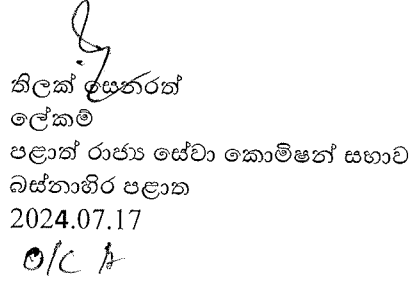 තිලක් සෙනරත්
ලේකම්
පළාත් රාජ්‍ය සේවා කොමිෂන් සභාව
බස්නාහිර පළාත
2024.07.17
O/C A